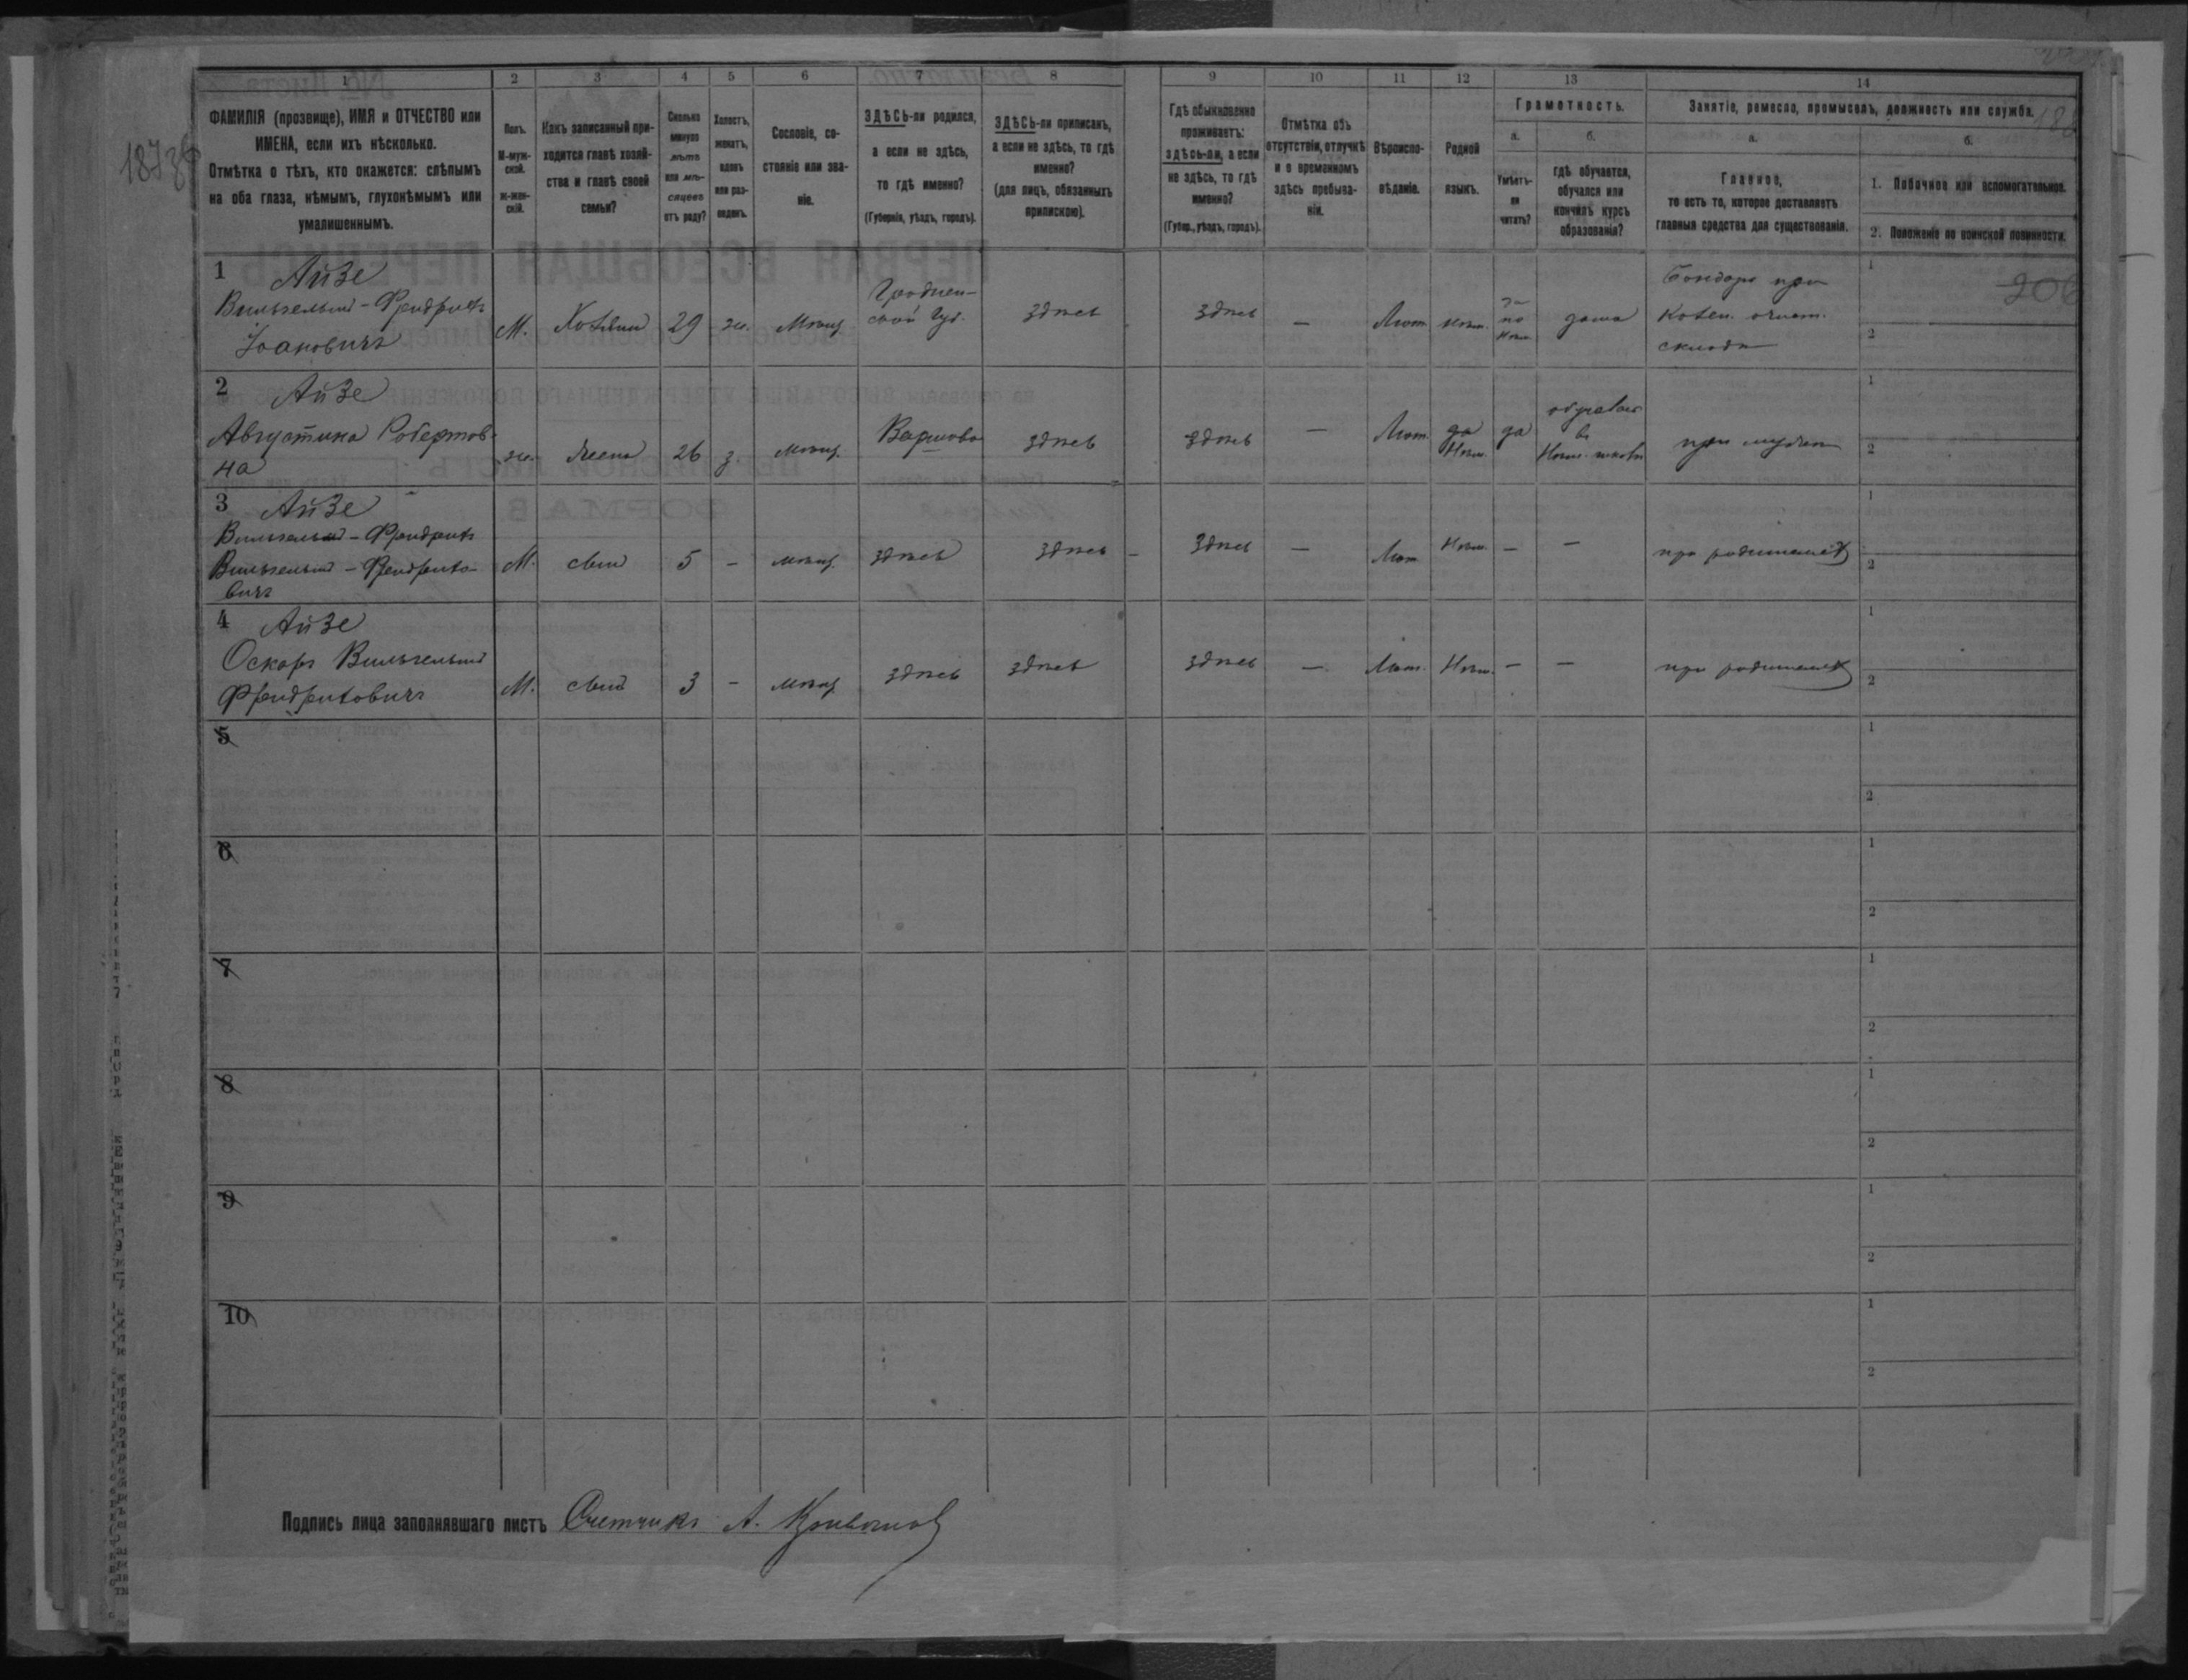 1 2 3 4 5 6 7 8 9 10 11 12 13 14
ФАМИЛІЯ (прозвище), ИМЯ и ОТЧЕСТВО или
ИМЕНА, если ихъ нѣсколько.
Отмѣтка о тѣхъ, кто окажется: слѣпымъ
на оба глаза, нѣмымъ, глухонѣмымъ или
умалишеннымъ.
Полъ.
М-муж-
ской.
Ж-жен-
скій.
Какъ записанный при-
ходится главѣ хозяй-
ства и главѣ своей
семьи?
Сколько
минуло
лѣтъ
или мѣ-
сяцевъ
отъ роду?
Холостъ,
женатъ,
вдовъ
или раз-
веденъ.
Сословіе, со-
стояніе или зва-
ніе.
ЗДѢСЬ-ли родился,
а если не здѣсь,
то гдѣ именно?
(Губернія, уѣздъ, городъ).
ЗДѢСЬ-ли приписанъ,
а если не здѣсь, то гдѣ
именно?
(для лицъ, обязанныхъ
припискою).
Гдѣ обыкновенно
проживаетъ:
здѣсь-ли, а если
не здѣсь, то гдѣ
именно?
(Губер., уѣздъ, городъ).
Отмѣтка объ
отсутствіи, отлучкѣ
и о временномъ
здѣсь пребыва-
ніи.
Вѣроиспо-
вѣданіе.
Родной
языкъ.
Грамотность.
а.
Умѣетъ-
ли
читать?
б.
гдѣ обучается,
обучался или
кончилъ курсъ
образованія?
Занятіе, ремесло, промыселъ, должность или служба.
а.
Главное,
то есть то, которое доставляетъ
главныя средства для существованія.
б.
1. Побочное или вспомогательное.
2. Положеніе по воинской повинности.
1 Айзе
Вильгельмъ-Фридрихъ
Іоановичъ
М. Хозяин 29 ж. Мѣщ.
Гроднен-
ской Губ.
здѣсь здѣсь — Лют. Нѣм.
по
Нѣм.
дома
Бондарь при
Казен. очист.
складѣ
1
2
2 Айзе
Августина Робертов-
на
ж. Жена 26 з. мѣщ. Варшава здѣсь здѣсь — Лют.
Нѣм.
да
въ
Нѣм. школѣ
при мужѣ
1
2
3 Айзе
Вильгельмъ-Фридрихъ
Вильгельмъ-Фридрихо-
вичъ
М. сынъ 5 - мѣщ. здѣсь здѣсь - здѣсь — Лют. Нѣм. — —
при родителяхъ
1
2
4 Айзе
Оскаръ Вильгельмъ
Фридриховичъ
М. сынъ 3 - мѣщ. здѣсь здѣсь здѣсь — Лют. Нѣм. — —
при родителяхъ
1
2
5 1
2
6 1
2
7 1
2
8 1
2
9 1
2
10 1
2
Подпись лица заполнявшаго листъ Счетчикъ А.